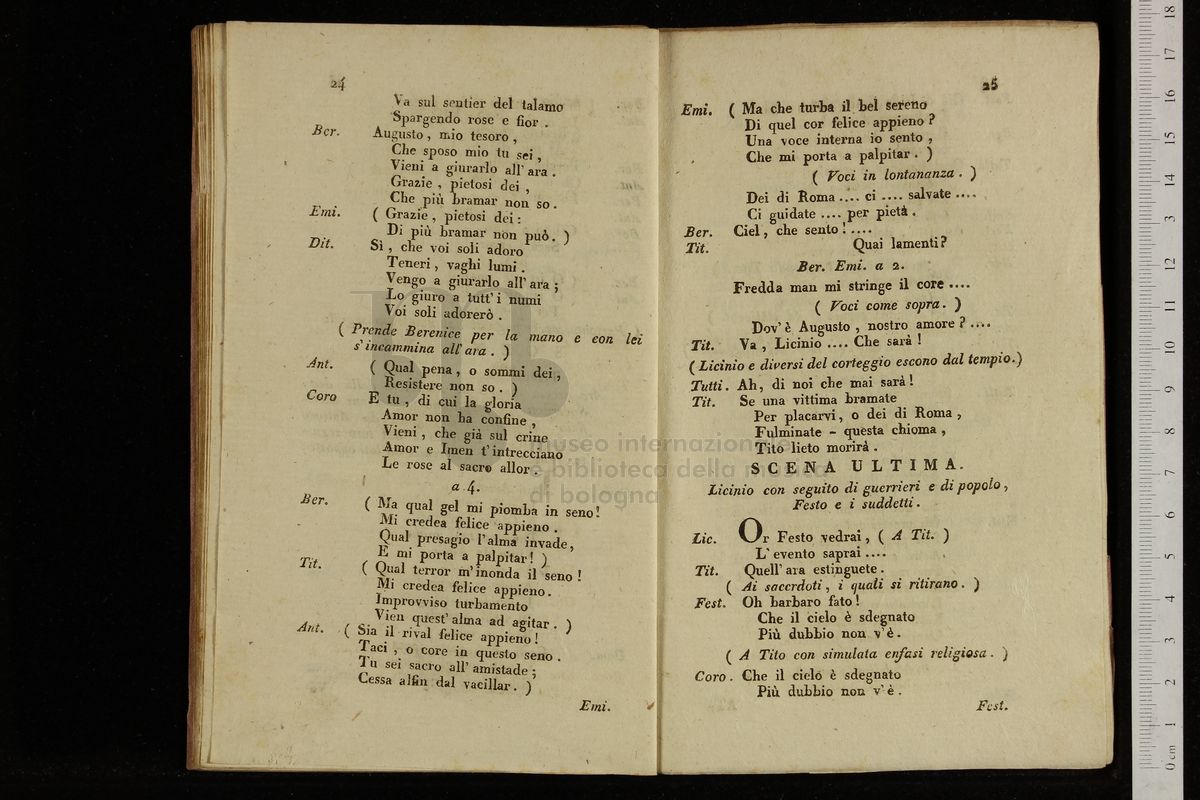 24
Va sul sentier del talamo
Spargendo rose e fior .
Ber. Augusto , mio tesoro ,
Che sposo mio tu sei ,
Vieni a giurarlo all' ara .
Grazie , pietosi dei ,
Che più bramar non so .
Emi. ( Grazie , pietosi dei :
Di più bramar non può. )
Dit. Sì , che voi soli adoro
Teneri , vaghi lumi .
Vengo a giurarlo all' ara ;
Lo giuro a tutt' i numi
Voi soli adorerò .
( Prende Berenice per la mano e con lei
s' incammina all' ara . )
Ant. ( Qual pena , o sommi dei ,
Resistere non so . )
Coro E tu , di cui la gloria
Amor non ha confine ,
Vieni , che già sul crine
Amor e Imen t' intrecciano
Le rose al sacro allor .
a 4.
Ber. ( Ma qual gel mi piomba in seno !
Mi credea felice appieno .
Qual presagio l' alma invade ,
E mi porta a palpitar ! )
Tit. ( Qual terror m' inonda il seno !
Mi credea felice appieno .
Improvviso turbamento
Vien quest' alma ad agitar . )
Ant. ( Sia il rival felice appieno !
Taci , o core in questo seno .
Tu sei sacro all' amistade ;
Cessa alfin dal vacillar . )
Emi.
25
Emi. ( Ma che turba il bel sereno
Di quel cor felice appieno ?
Una voce interna io sento ,
Che mi porta a palpitar . )
( Voci in lontananza . )
Dei di Roma .... ci .... salvate ....
Ci guidate .... per pietà .
Ber. Ciel , che sento ! ....
Tit. Quai lamenti ?
Ber. Emi. a 2.
Fredda man mi stringe il core ....
( Voci come sopra . )
Dov' è Augusto , nostro amore ? ....
Tit. Va , Licinio .... Che sarà !
( Licinio e diversi del corteggio escono dal tempio. )
Tutti . Ah, di noi che mai sarà !
Tit. Se una vittima bramate
Per placarvi , o dei di Roma ,
Fulminate - questa chioma ,
Tito lieto morirà .
SCENA ULTIMA.
Licinio con seguito di guerrieri e di popolo ,
Festo e i suddetti .
Lic. Or Festo vedrai , ( A Tit. )
L' evento saprai ....
Tit. Quell' ara estinguete .
( Ai sacerdoti , i quali si ritirano . )
Fest. Oh barbaro fato !
Che il cielo è sdegnato
Più dubbio non v' è .
( A Tito con simulata enfasi religiosa . )
Coro . Che il cielo è sdegnato
Più dubbio non v' è .
Fest.
museo internazionale
e biblioteca della musica
di bologna
0 cm 1 2 3 4 5 6 7 8 9 10 11 12 13 14 15 16 17 18